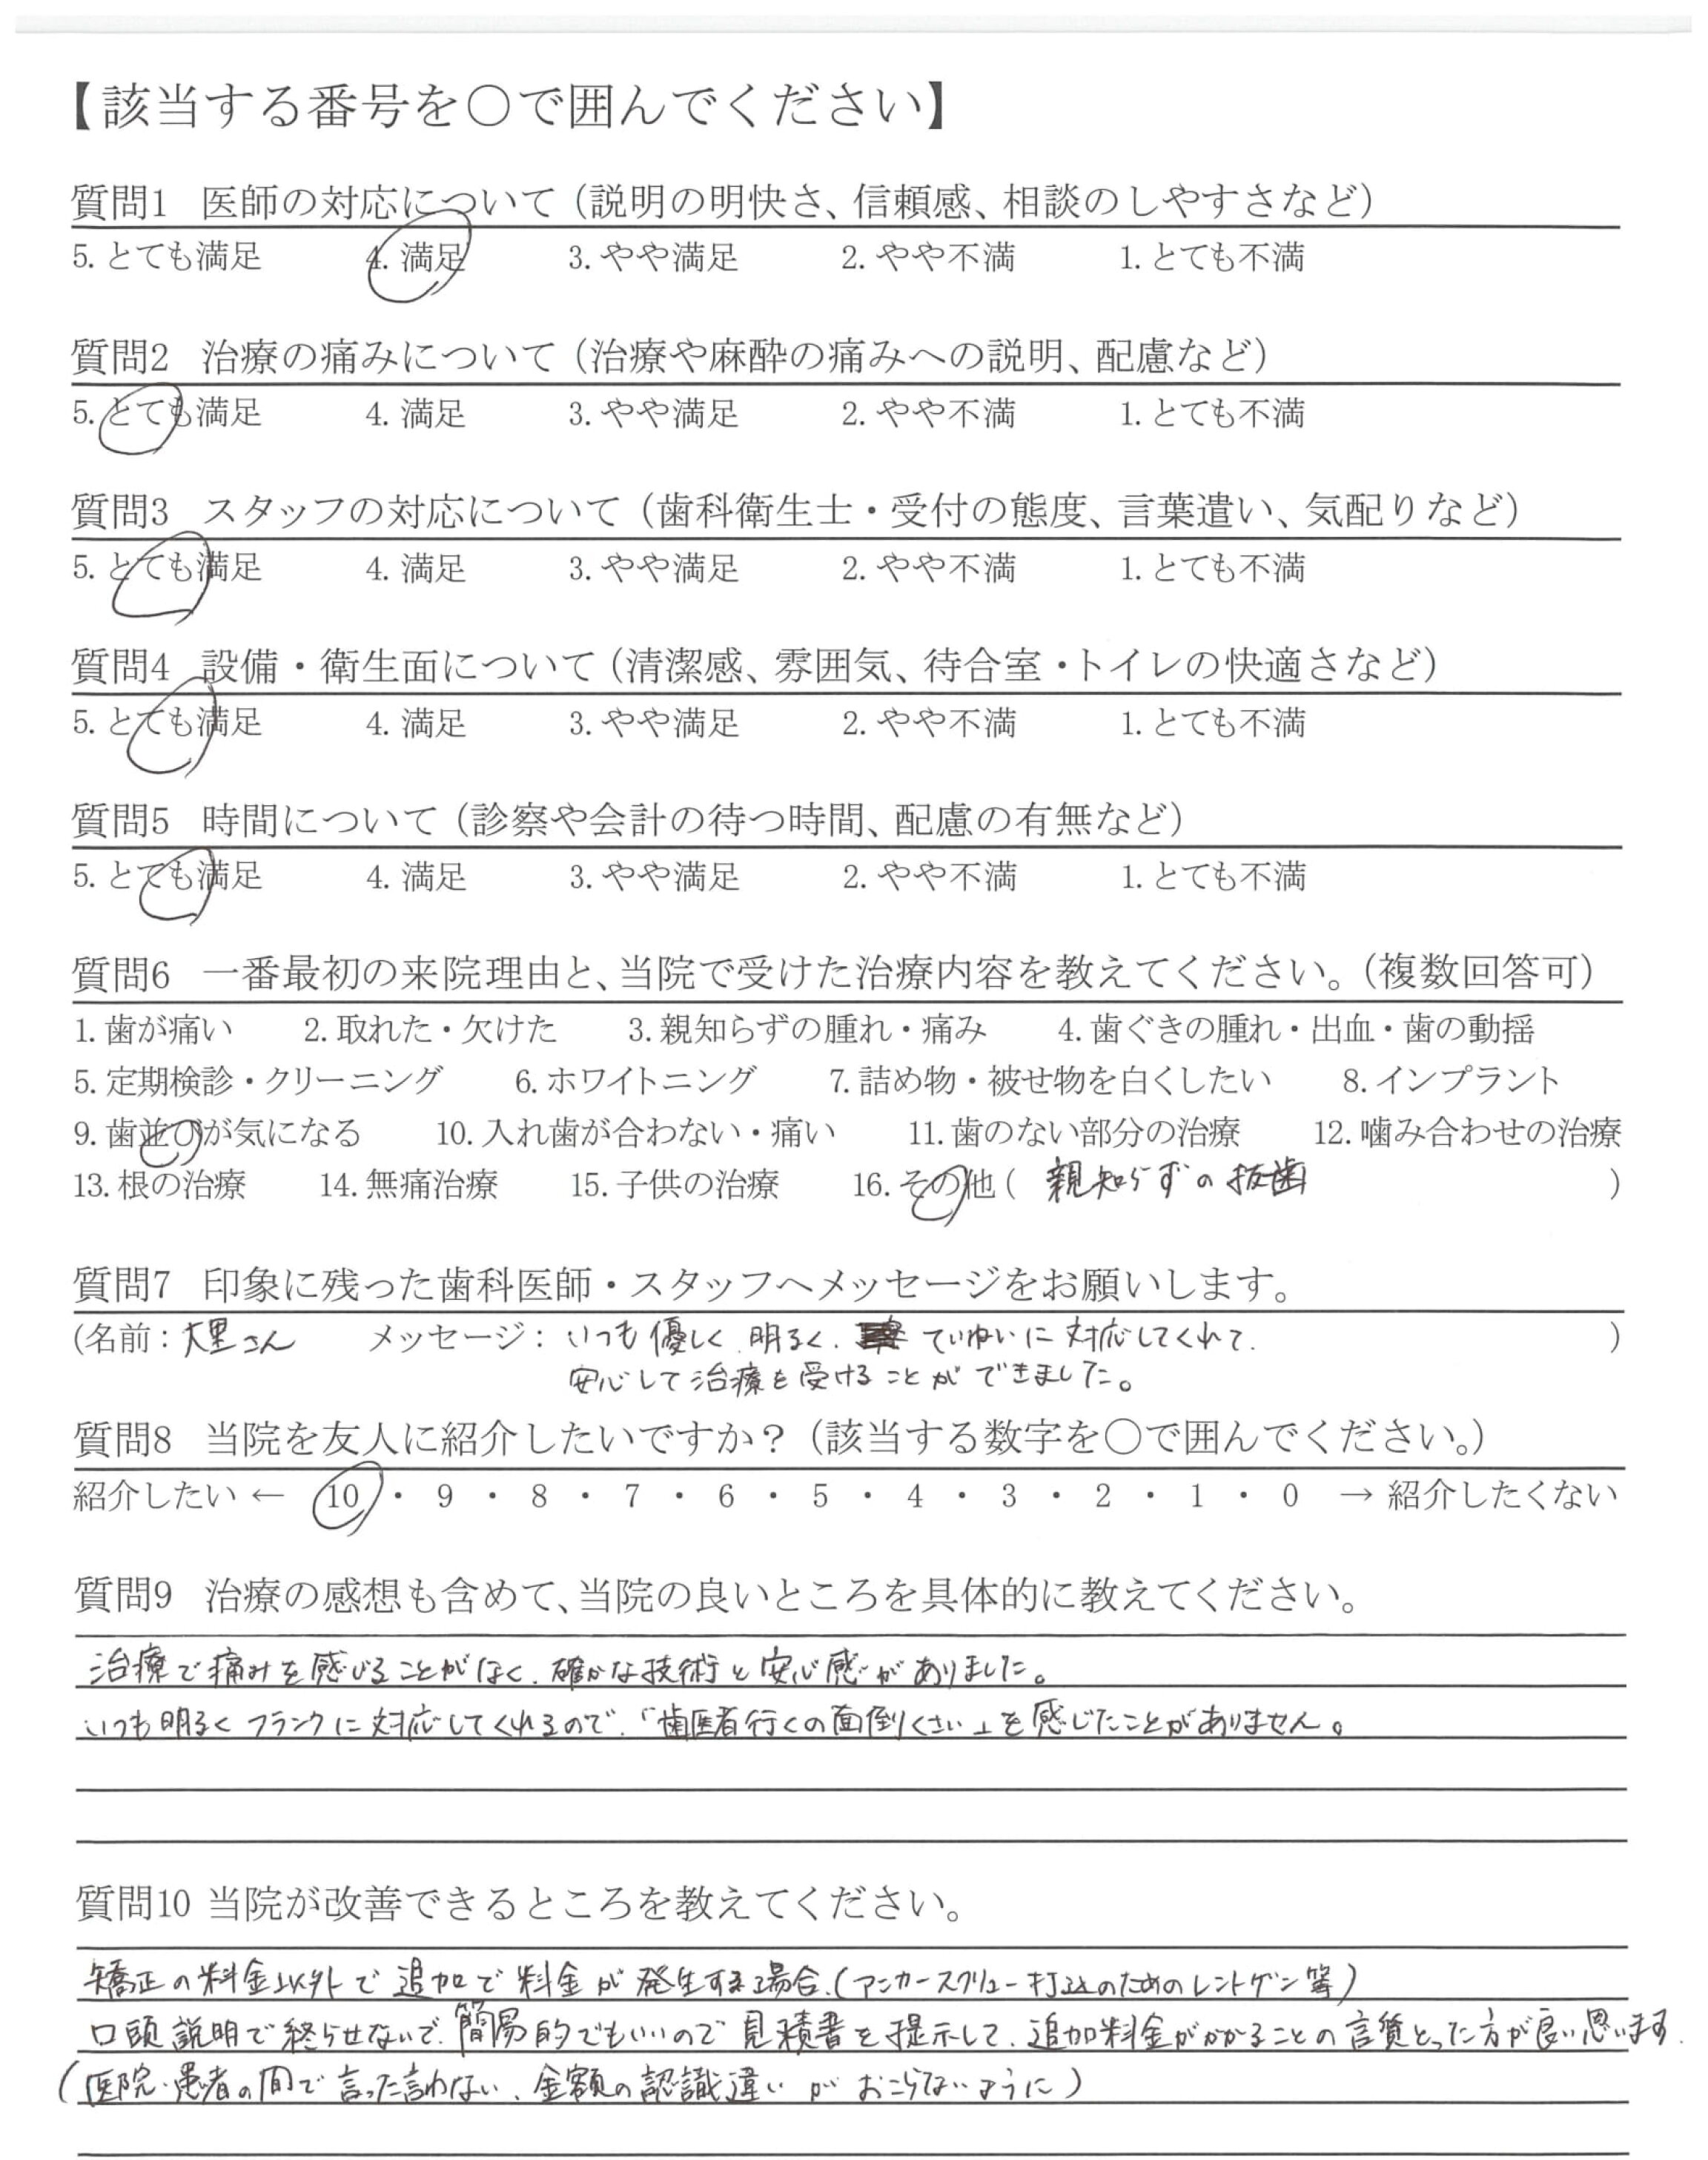 【該当する番号を○で囲んでください】
質問1 医師の対応について（説明の明快さ、信頼感、相談のしやすさなど）
5. とても満足 4. 満足 3. やや満足 2. やや不満 1. とても不満
質問2 治療の痛みについて（治療や麻酔の痛みへの説明、配慮など）
5. とても満足 4. 満足 3. やや満足 2. やや不満 1. とても不満
質問3 スタッフの対応について（歯科衛生士・受付の態度、言葉遣い、気配りなど）
5. とても満足 4. 満足 3. やや満足 2. やや不満 1. とても不満
質問4 設備・衛生面について（清潔感、雰囲気、待合室・トイレの快適さなど）
5. とても満足 4. 満足 3. やや満足 2. やや不満 1. とても不満
質問5 時間について（診察や会計の待つ時間、配慮の有無など）
5. とても満足 4. 満足 3. やや満足 2. やや不満 1. とても不満
質問6 一番最初の来院理由と、当院で受けた治療内容を教えてください。（複数回答可）
1. 歯が痛い 2. 取れた・欠けた 3. 親知らずの腫れ・痛み 4. 歯ぐきの腫れ・出血・歯の動揺
5. 定期検診・クリーニング 6. ホワイトニング 7. 詰め物・被せ物を白くしたい 8. インプラント
9. 歯並びが気になる 10. 入れ歯が合わない・痛い 11. 歯のない部分の治療 12. 噛み合わせの治療
13. 根の治療 14. 無痛治療 15. 子供の治療 16. その他（ 親知らずの抜歯 ）
質問7 印象に残った歯科医師・スタッフへメッセージをお願いします。
（名前：大里さん メッセージ：いつも優しく、明るく、ていねいに対応してくれて、 ）
安心して治療を受けることができました。
質問8 当院を友人に紹介したいですか？（該当する数字を○で囲んでください。）
紹介したい ← 10 ・ 9 ・ 8 ・ 7 ・ 6 ・ 5 ・ 4 ・ 3 ・ 2 ・ 1 ・ 0 → 紹介したくない
質問9 治療の感想も含めて、当院の良いところを具体的に教えてください。
治療で痛みを感じることがなく、確かな技術と安心感がありました。
いつも明るくフランクに対応してくれるので、「歯医者行くの面倒くさい」を感じたことがありません。
質問10 当院が改善できるところを教えてください。
矯正の料金以外で追加で料金が発生する場合、（アンカースクリュー打込のためのレントゲン等）
口頭説明で終らせないで、簡易的でもいいので見積書を提示して、追加料金がかかることの言質とった方が良い思います。
（医院・患者の間で言った言わない、金額の認識違いがおこらないように）